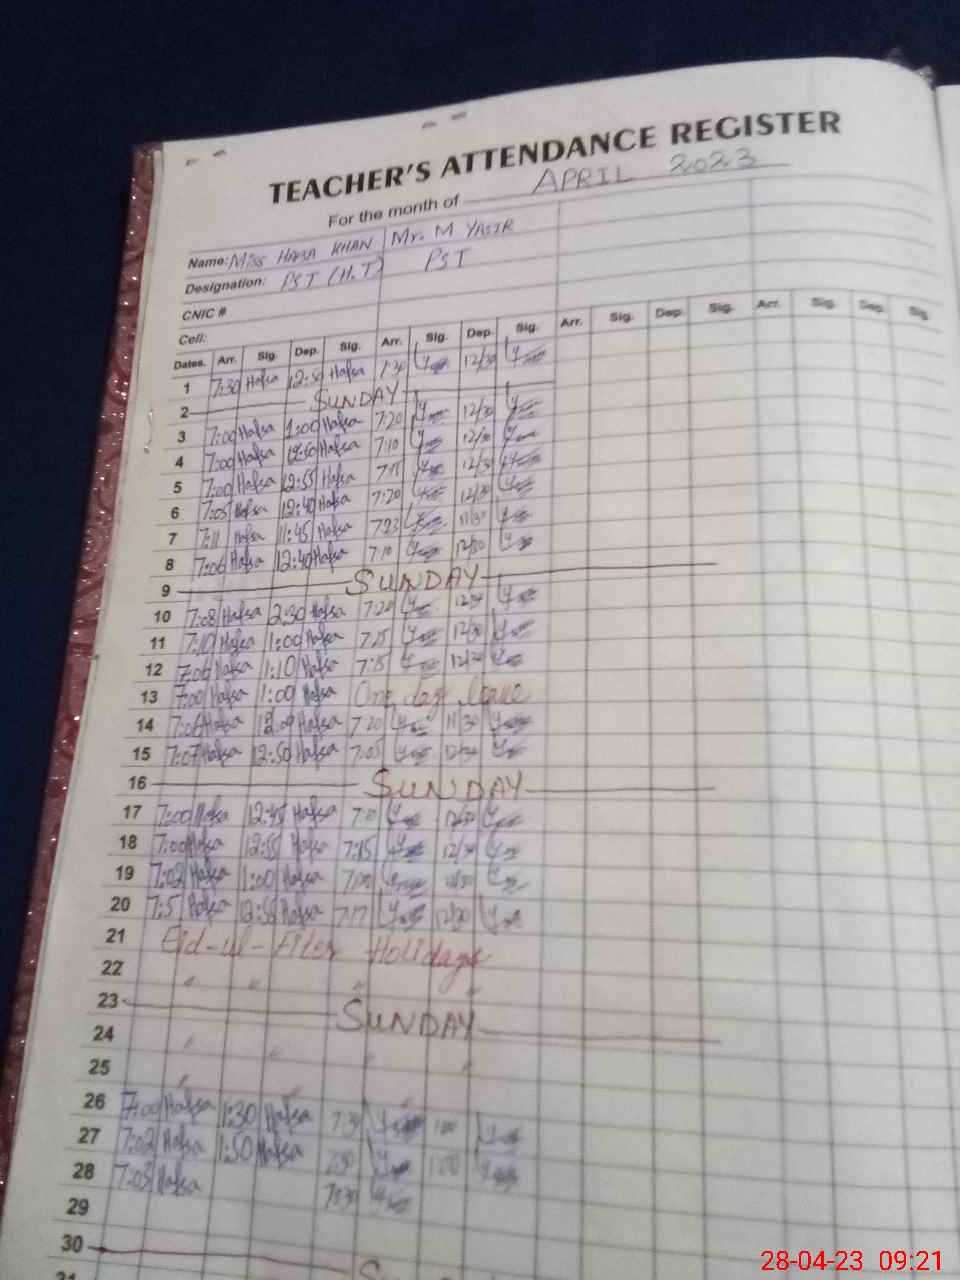 TEACHER'S ATTENDANCE REGISTER
For the month of APRIL 2023
Name: Miss HAFSA KHAN Mr. M YASIR
Designation: PST (H.T) PST
CNIC #
Cell:
Dates. Arr. Sig. Dep. Sig. Arr. Sig. Dep. Sig. Arr. Sig. Dep. Sig. Arr. Sig. Dep. Sig.
1 7:30 Hafsa 12:30 Hafsa 7:30 12/30
2 SUNDAY
3 7:00 Hafsa 1:00 Hafsa 7:20 12/30
4 7:00 Hafsa 12:50 Hafsa 7:10 12/30
5 7:00 Hafsa 12:55 Hafsa 7:15 12/30
6 7:05 Hafsa 12:40 Hafsa 7:20 12/30
7 7:11 Hafsa 11:45 Hafsa 7:23 11/30
8 7:06 Hafsa 12:40 Hafsa 7:10 12/30
9 SUNDAY
10 7:08 Hafsa 2:30 Hafsa 7:20 12/30
11 7:10 Hafsa 1:00 Hafsa 7:25 12/30
12 7:06 Hafsa 1:10 Hafsa 7:15 12/30
13 7:00 Hafsa 1:00 Hafsa One day leave
14 7:06 Hafsa Hafsa 7:20 11/30
15 7:07 Hafsa 12:50 Hafsa 7:05 12/30
16 SUNDAY
17 7:00 Hafsa 12:45 Hafsa 7:10 12/30
18 7:00 Hafsa 12:55 Hafsa 7:15 12/30
19 7:02 Hafsa 1:00 Hafsa 7:00 12/30
20 7:5 Hafsa 12:55 Hafsa 7:17 12/30
21 Eid-ul-Fiter Holidays
22 " " " "
23 SUNDAY
24 " " " "
25 " " " "
26 7:00 Hafsa 1:30 Hafsa 7:30 1:00
27 7:02 Hafsa 1:50 Hafsa 7:30 1:00
28 7:03 Hafsa 7:30
29
30
31
28-04-23 09:21